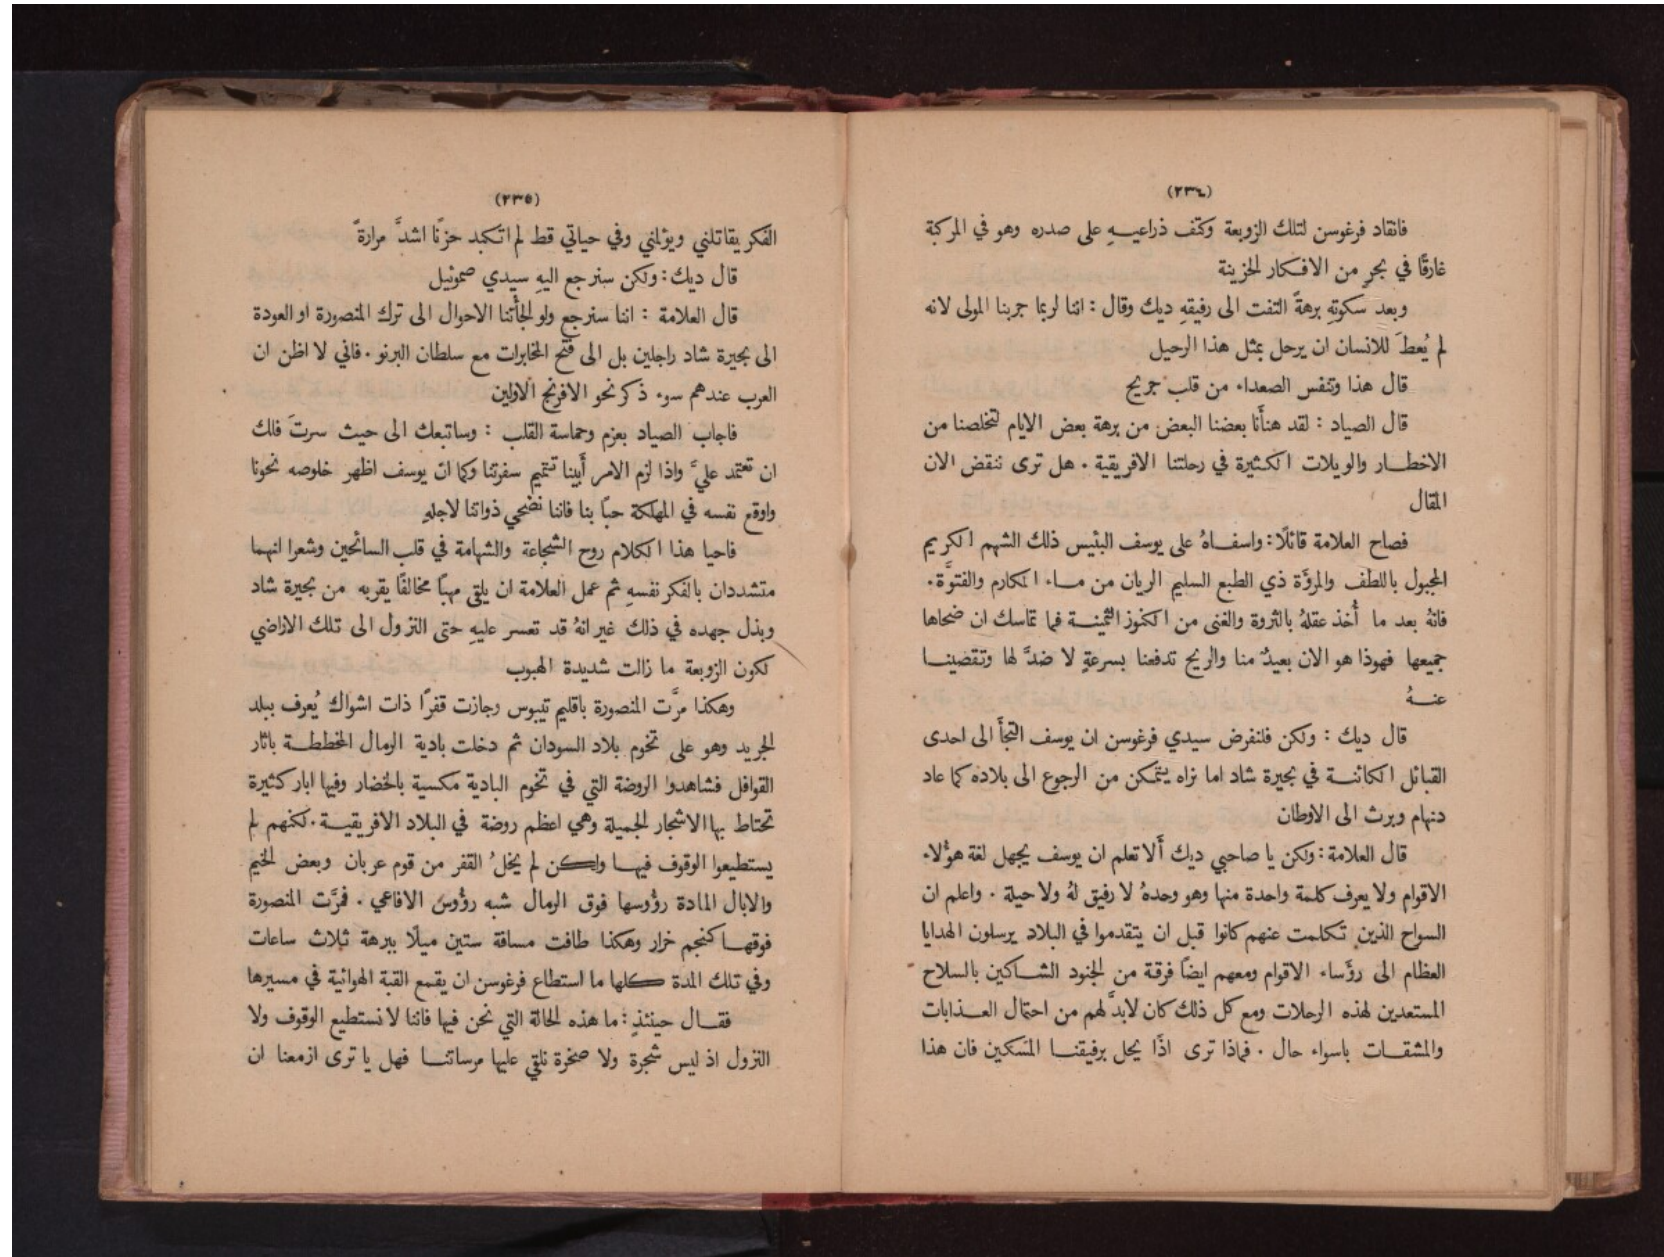 (٢٣٤)
فانقاد فرغوسن لتلك الزوبعة وكتف ذراعيهِ على صدره وهو في المركبة
غارقًا في بحرٍ من الافكار الحزينة
وبعد سكوتهِ برهةً التفت الى رفيقهِ ديك وقال : اننا لربما جربنا المولى لانه
لم يُعطَ للانسان ان يرحل بمثل هذا الرحيل
قال هذا وتنفس الصعداء من قلب جريح
قال الصياد : لقد هنأَنا بعضنا البعض من برهة بعض الايام لتخلصنا من
الاخطار والويلات الكثيرة في رحلتنا الافريقية . هل ترى ننقض الان
المقال
فصاح العلامة قائلًا : واسفاهُ على يوسف البئيس ذلك الشهم الكريم
المجبول باللطف والمروَّة ذي الطبع السليم الريان من ماء المكارم والفتوَّة .
فانهُ بعد ما أُخذ عقلهُ بالثروة والغنى من الكنوز الثمينة فما تماسك ان ضحاها
جميعها فهوذا هو الان بعيدٌ منا والريح تدفعنا بسرعةٍ لا ضدَّ لها وتقصينا
عنهُ
قال ديك : ولكن فلنفرض سيدي فرغوسن ان يوسف التجأَ الى احدى
القبائل الكائنة في بحيرة شاد اما نراه يتمكن من الرجوع الى بلاده كما عاد
دنهام وبرث الى الاوطان
قال العلامة : ولكن يا صاحبي ديك أَلا تعلم ان يوسف يجهل لغة هوُلاء
الاقوام ولا يعرف كلمة واحدة منها وهو وحدهُ لا رفيق لهُ ولا حيلة . واعلم ان
السواح الذين تكلمت عنهم كانوا قبل ان يتقدموا في البلاد يرسلون الهدايا
العظام الى روَّساء الاقوام ومعهم ايضًا فرقة من الجنود الشاكين بالسلاح
المستعدين لهذه الرحلات ومع كل ذلك كان لابدَّ لهم من احتمال العذابات
والمشقات باسواء حال . فماذا ترى اذًا يحل برفيقنا المسكين فان هذا
(٢٣٥)
الفكر يقاتلني ويوُلمني وفي حياتي قط لم اتكبد حزنًا اشدَّ مرارةً
قال ديك : ولكن سنرجع اليهِ سيدي صموئيل
قال العلامة : اننا سنرجع ولو الجأَتنا الاحوال الى ترك المنصورة او العودة
الى بحيرة شاد راجلين بل الى فتح المخابرات مع سلطان البرنو . فاني لا اظن ان
العرب عندهم سوء ذكر نحو الافرنج الاولين
فاجاب الصياد بعزم وحماسة القلب : وساتبعك الى حيث سرتَ فلك
ان تعتمد عليَّ واذا لزم الامر أَبينا تتميم سفرتنا وكما ان يوسف اظهر خلوصه نحونا
واوقع نفسه في المهلكة حبًا بنا فاننا نضحي ذواتنا لاجلهِ
فاحيا هذا الكلام روح الشجاعة والشهامة في قلب السائحين وشعرا انهما
متشددان بالفكر نفسهِ ثم عمل العلامة ان يلقى مهبًا مخالفًا يقربه من بحيرة شاد
وبذل جهده في ذلك غير انهُ قد تعسر عليهِ حتى النزول الى تلك الاراضي
لكون الزوبعة ما زالت شديدة الهبوب
وهكذا مرَّت المنصورة باقليم تيبوس وجازت قفرًا ذات اشواك يُعرف ببلد
الجريد وهو على تخوم بلاد السودان ثم دخلت بادية الرمال المخططة باثار
القوافل فشاهدوا الروضة التي في تخوم البادية مكسية بالخضار وفيها ابار كثيرة
تحتاط بها الاشجار الجميلة وهي اعظم روضة في البلاد الافريقية . لكنهم لم
يستطيعوا الوقوف فيها ولكن لم يخلُ القفر من قوم عربان وبعض الخيم
والابال المادة روُوسها فوق الرمال شبه روُوس الافاعي . فمرَّت المنصورة
فوقها كنجم خرار وهكذا طافت مسافة ستين ميلًا ببرهة ثلاث ساعات
وفي تلك المدة كلها ما استطاع فرغوسن ان يقمع القبة الهوائية في مسيرها
فقال حينئذٍ : ما هذه الحالة التي نحن فيها فاننا لا نستطيع الوقوف ولا
النزول اذ ليس شجرة ولا صخرة نلقي عليها مرساتنا فهل يا ترى ازمعنا ان